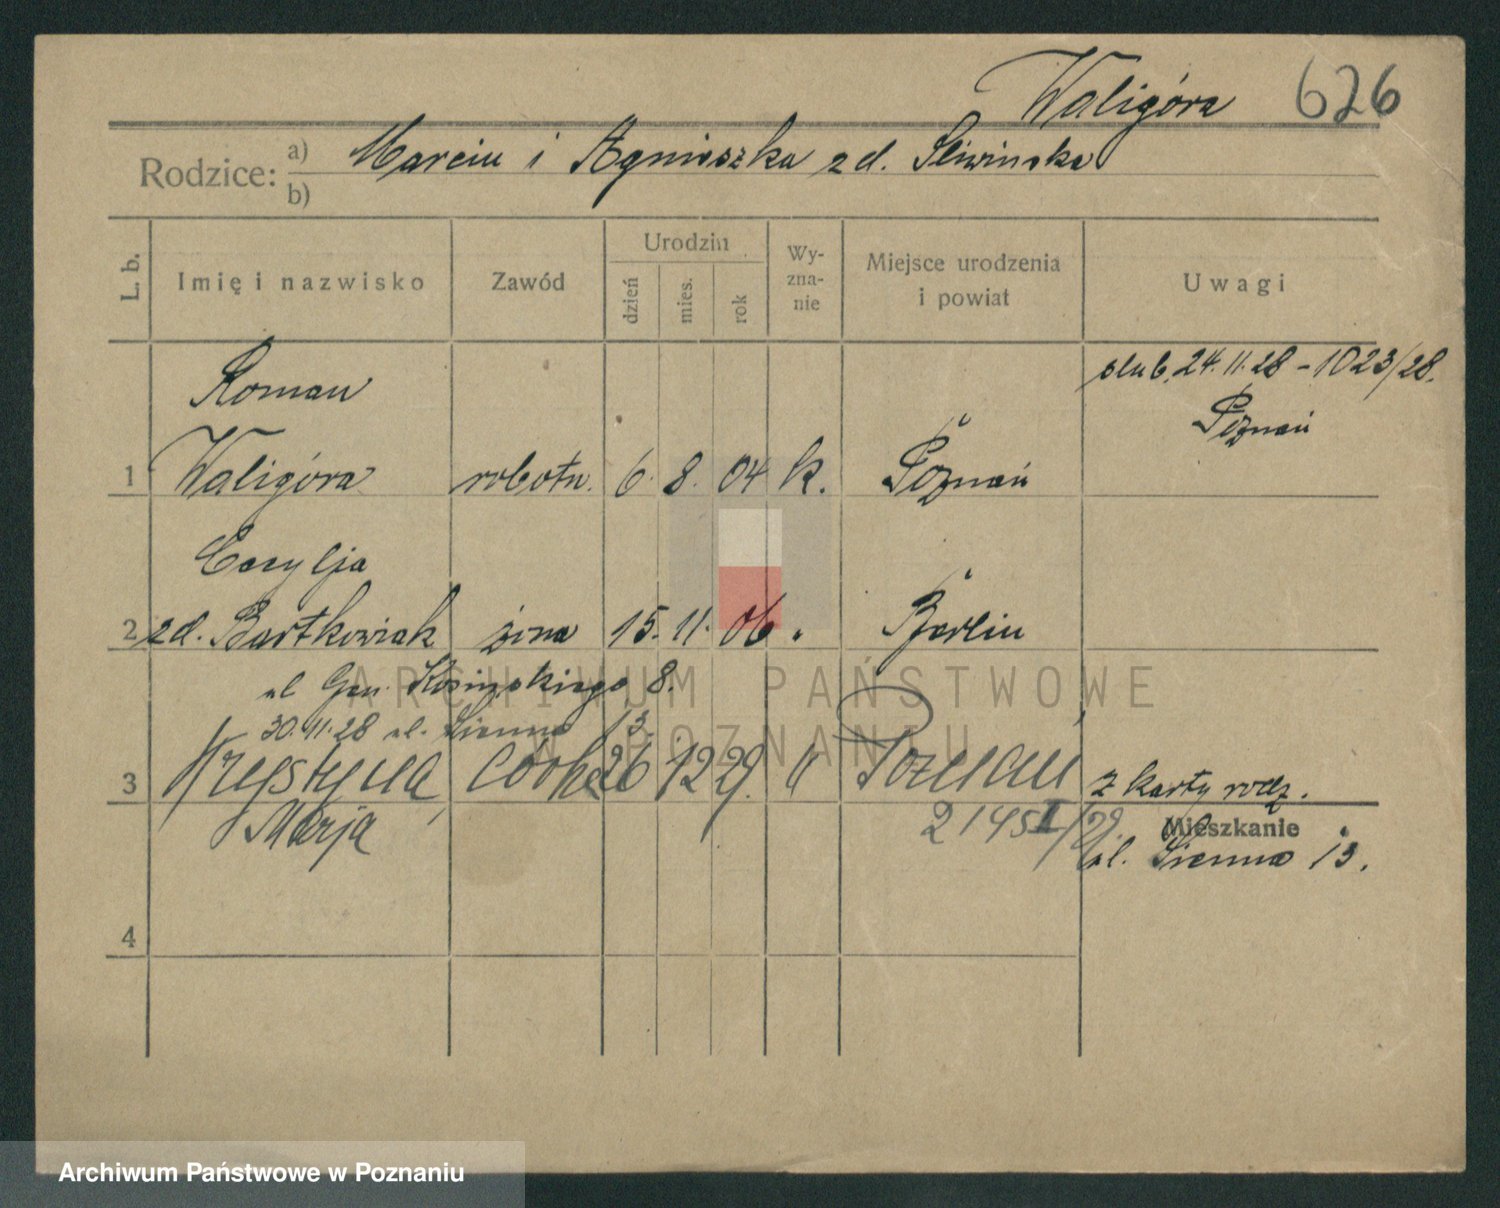 Waligóra 626
Rodzice: a) Marcin i Agnieszka zd. Śliwińska
b)
L. b. Imię i nazwisko Zawód Urodzin dzień mies. rok Wy-zna-nie Miejsce urodzenia i powiat Uwagi
Roman ślub. 24.11.28 – 1023/28.
Poznań
1 Waligóra robotn. 6. 8. 04 k. Poznań
Cecylja
2 zd. Bartkowiak żona 15. 11. 06 " Berlin
ul Gen. Kosińskiego 8.
30.11.28 ul. Sienna 13.
3 Krystyna córka 26 12 29. " Poznań z karty rodz.
Marja 2145 I/29. Mieszkanie
ul. Sienna 13.
4
ARCHIWUM PAŃSTWOWE
W POZNANIU
Archiwum Państwowe w Poznaniu